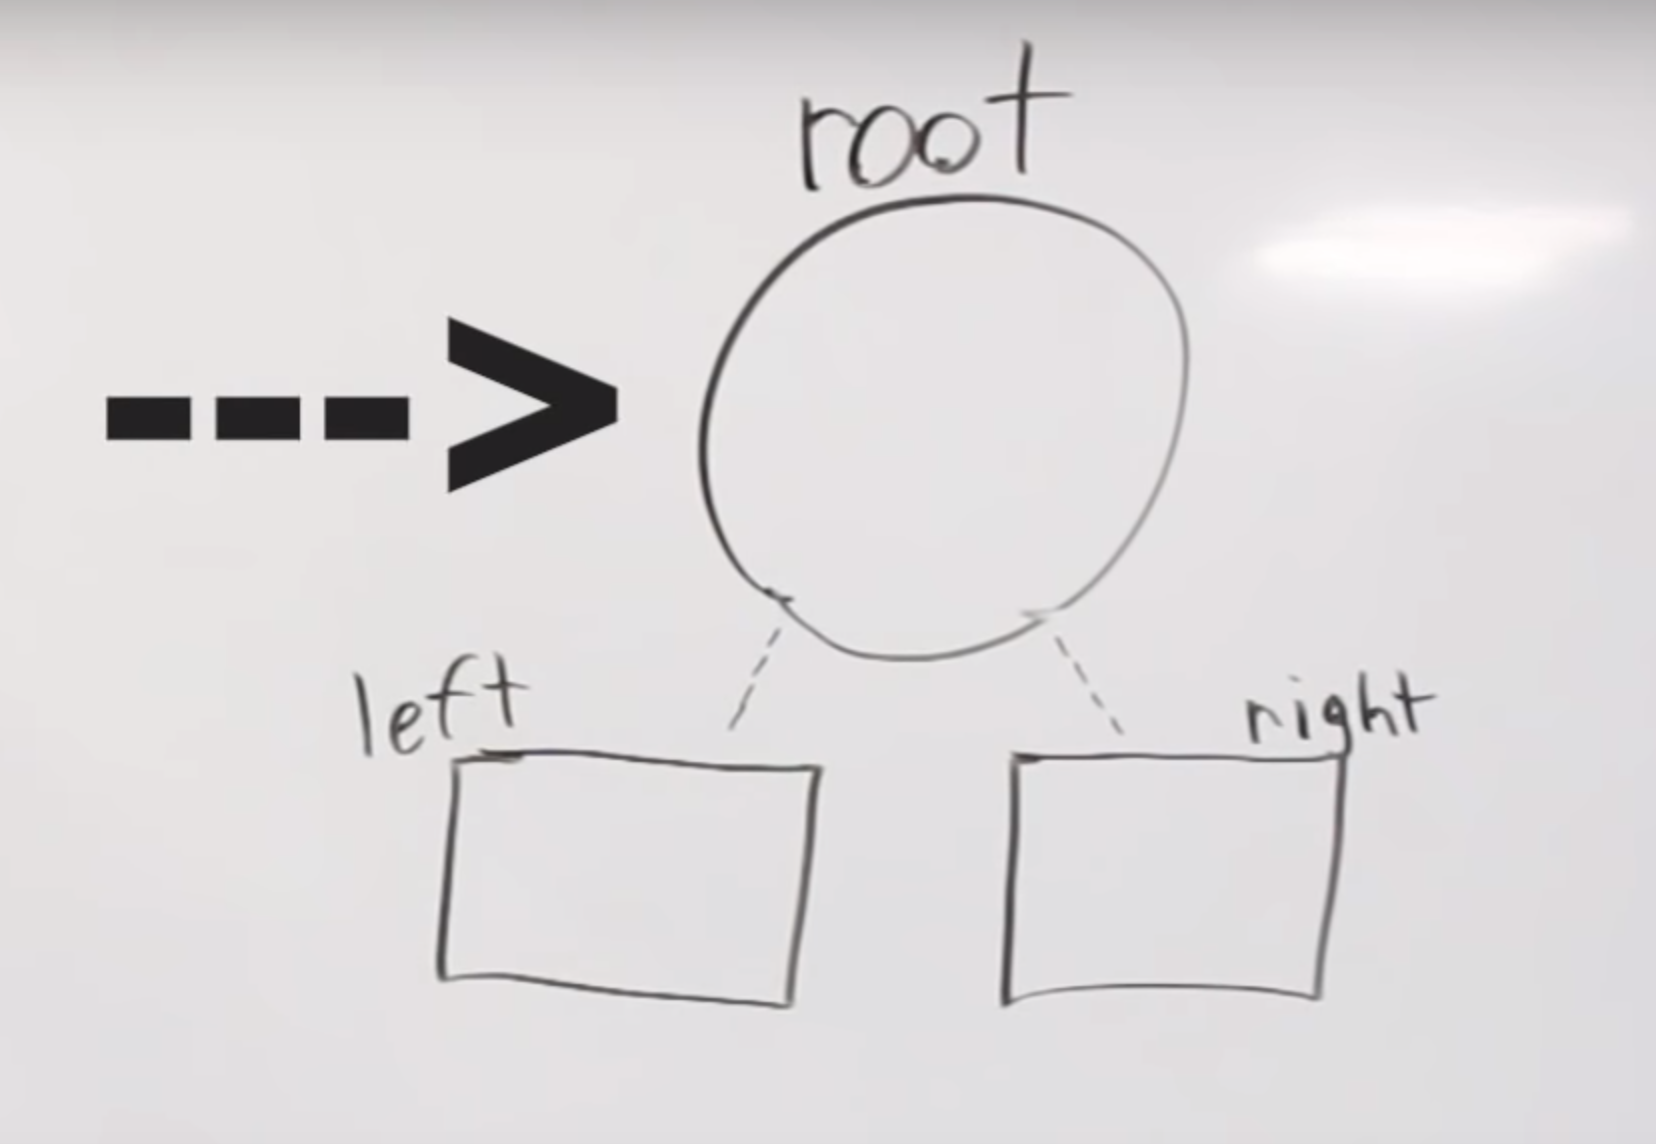 root
--->
left
right